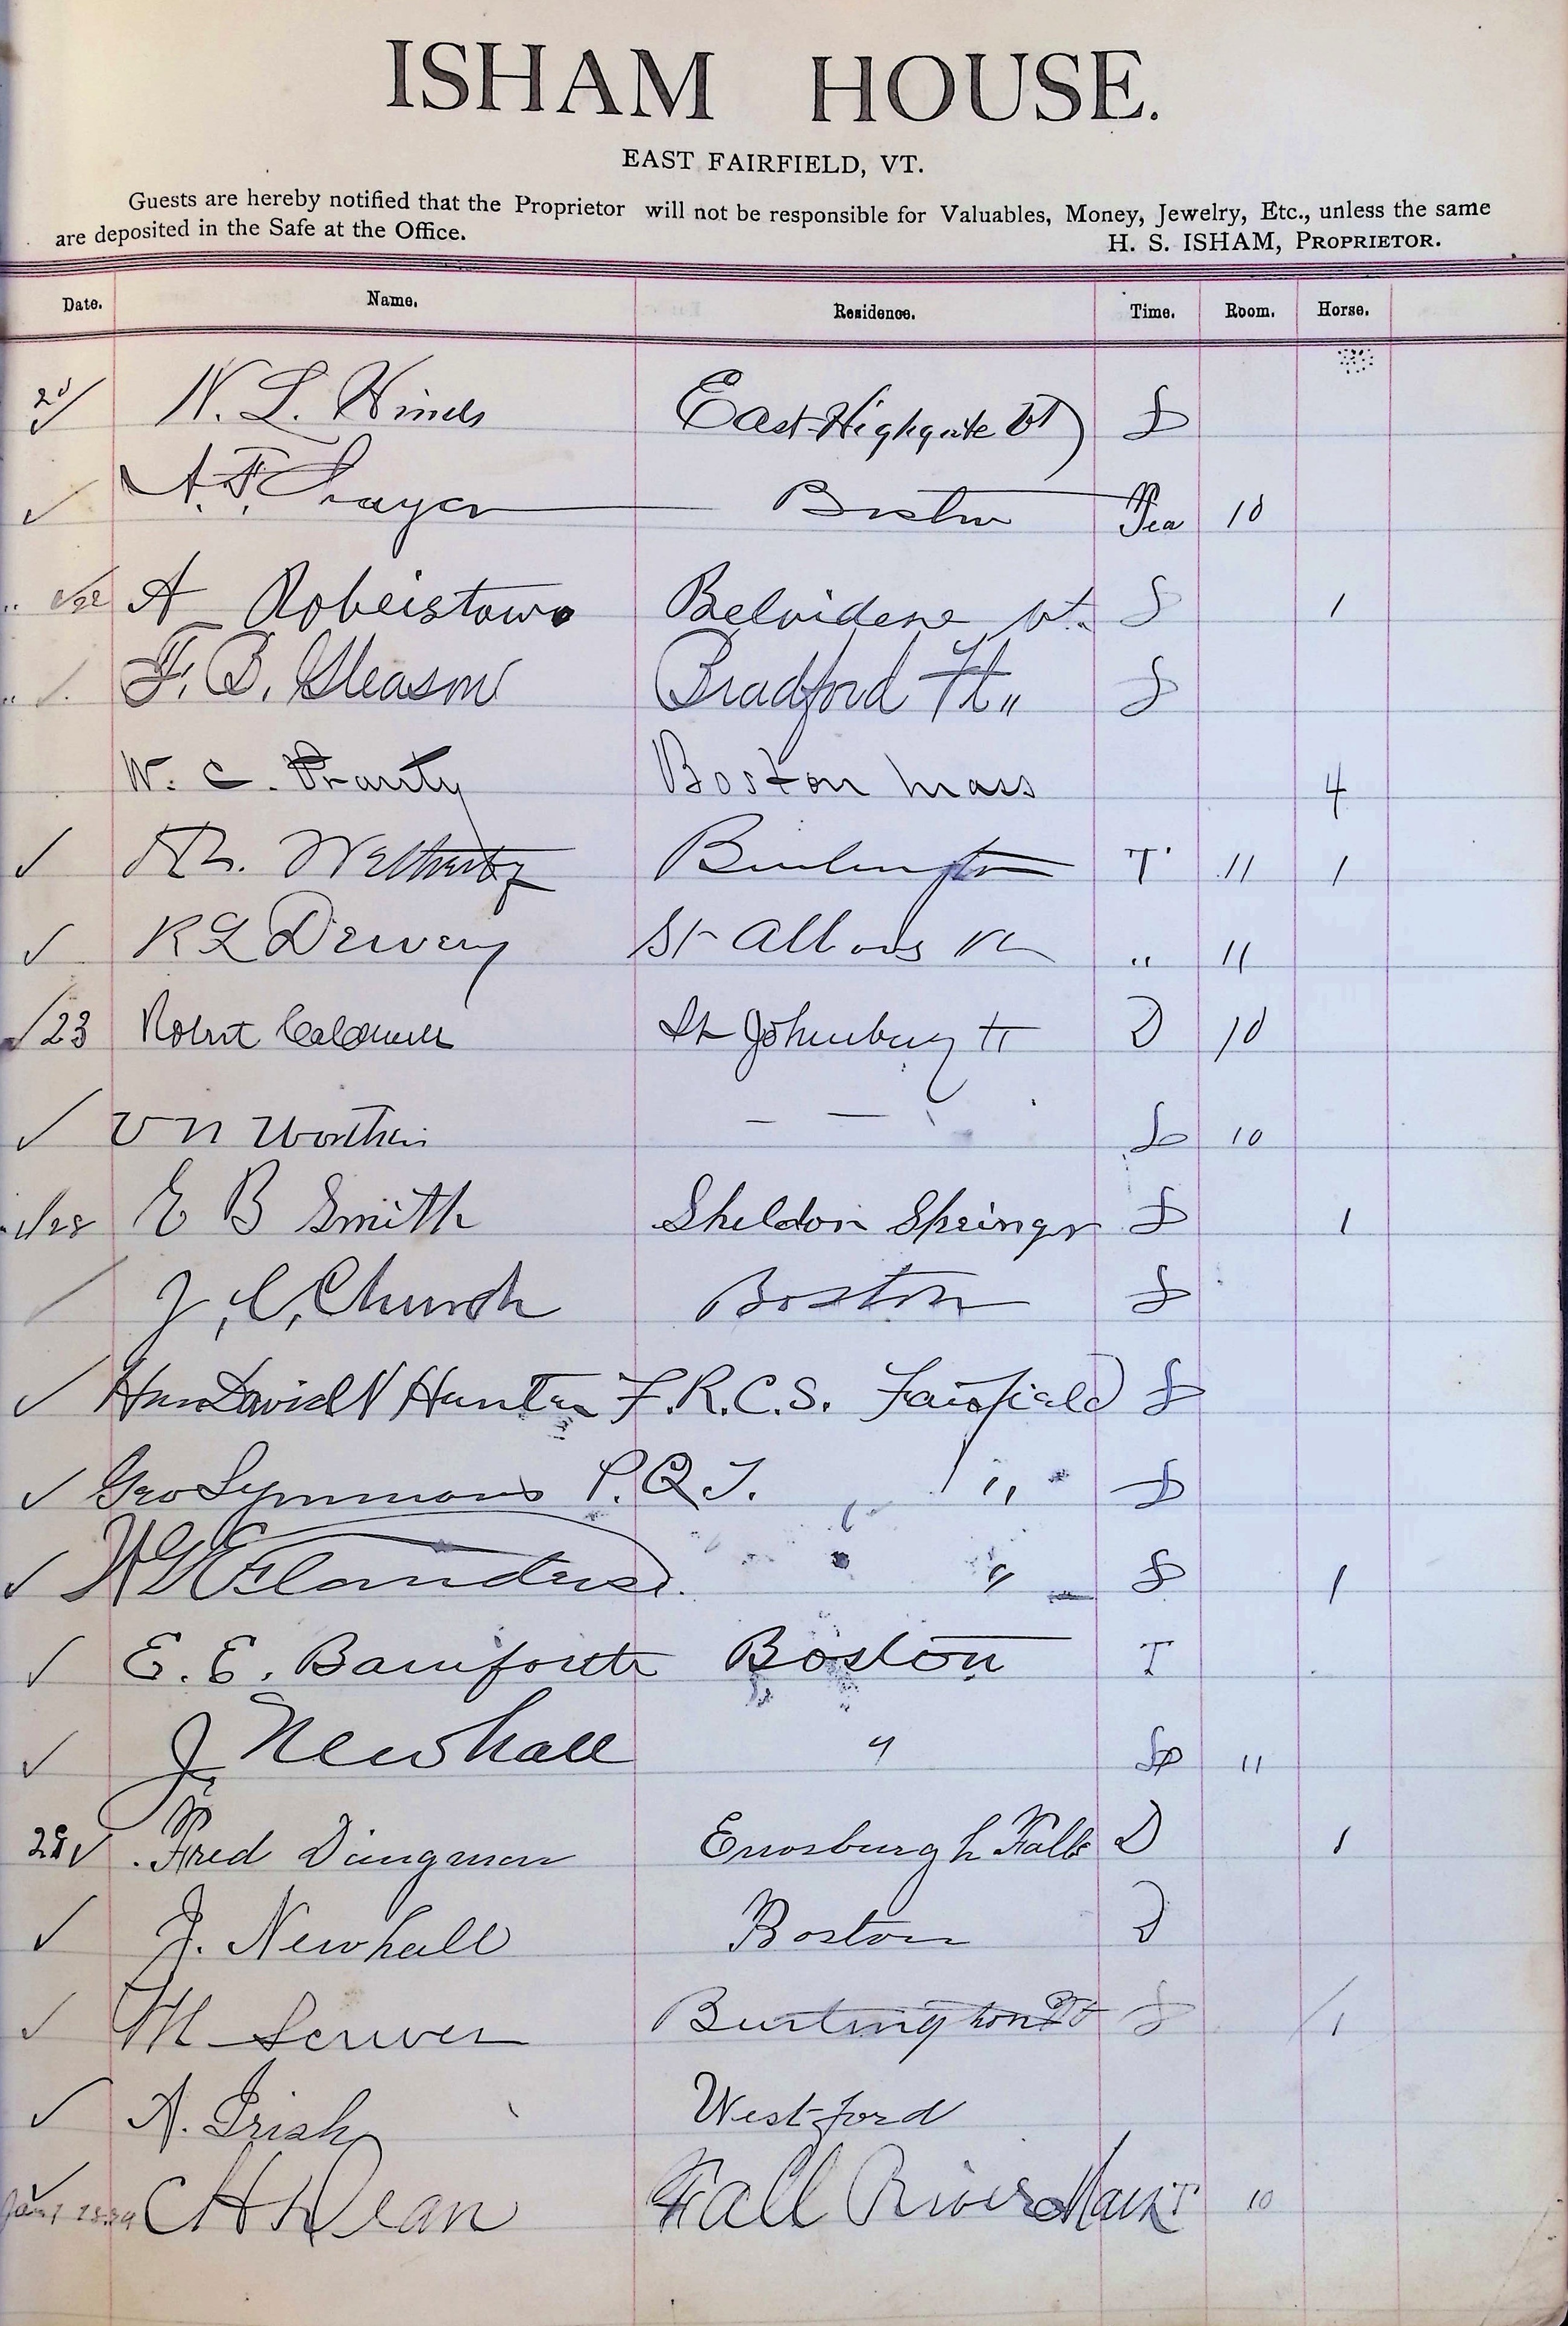 ISHAM HOUSE.
EAST FAIRFIELD, VT.
Guests are hereby notified that the Proprietor will not be responsible for Valuables, Money, Jewelry, Etc., unless the same
are deposited in the Safe at the Office. H. S. ISHAM, PROPRIETOR.
Date. Name. Residence. Time. Room. Horse.
N. L. Hines East Highgate Vt
A. F. Boston Tea 10
A Belvidere Vt. 1
F. B. Gleason Bradford Vt
W. C. Prouty Boston Mass 4
Burlington T 11 1
R L Dewey St Albans Vt " 11
23 Robert Caldwell St Johnsbury Vt D 10
V N 10
28 E B Smith Sheldon Springs 1
J. C. Church Boston
Hon David N Hunter F.R.C.S. Fairfield
Geo Symmons P.Q.T. "
Flanders " 1
E. E. Bamforth Boston T
J. Newhall " 11
Fred Dingman Enosburgh Falls D 1
J. Newhall Boston D
M Scriver Burlington Vt 1
A. Irish Westford
C H Dean Fall River Mass T 10